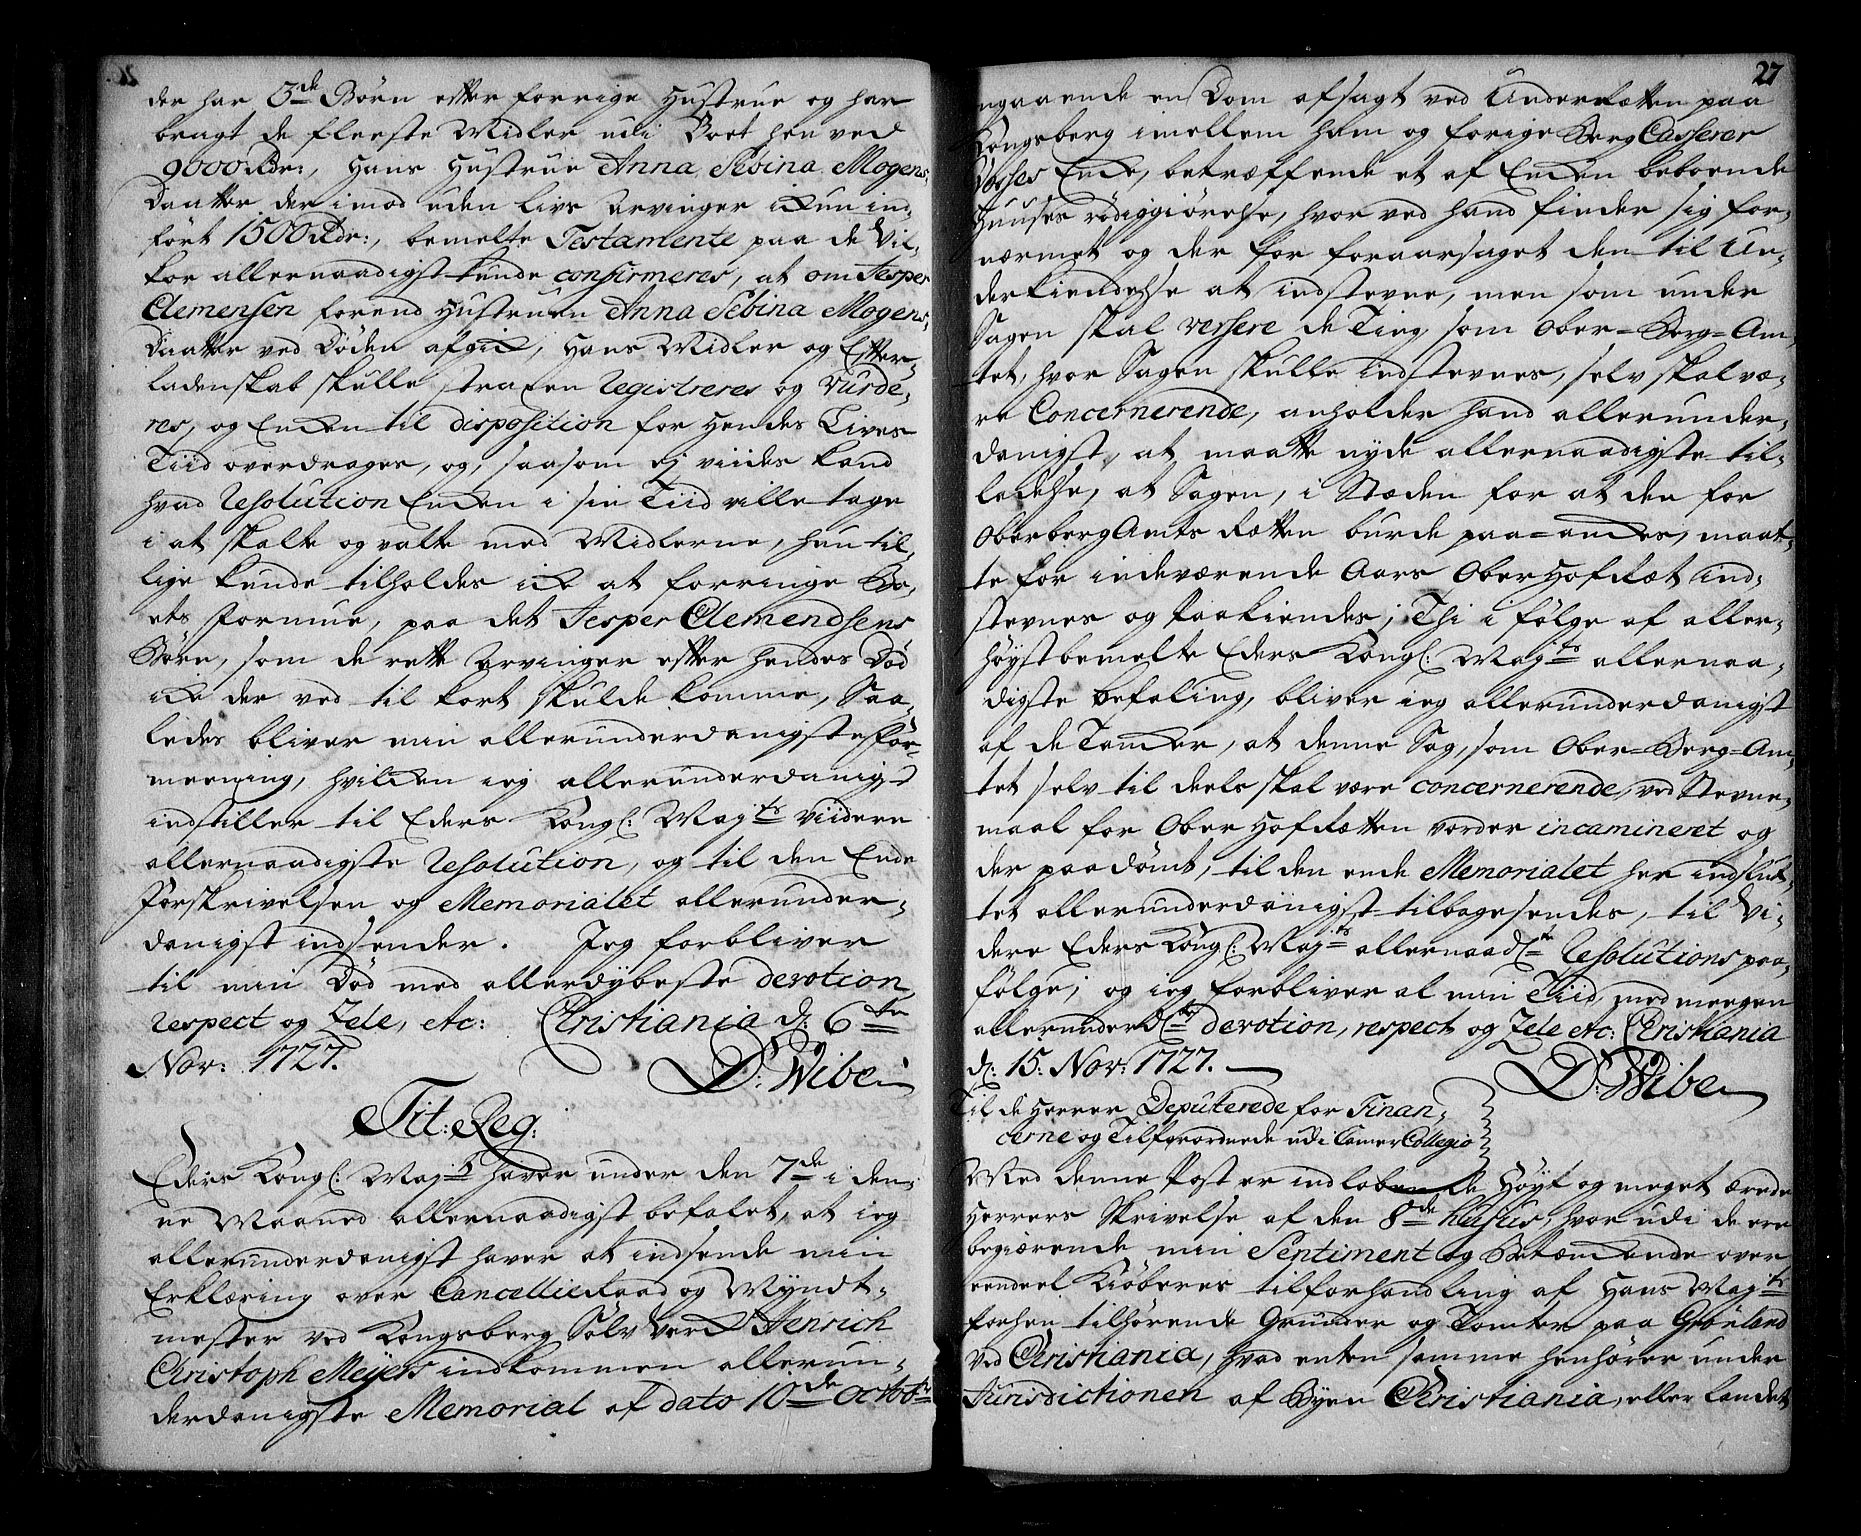 der har 3de Börn efter forrige Hustrue og har
bragt de fleeste Midler udi Boet hen ved
9000 Rdr:, Hans Hustrue Anna Sebina Mogens-
Daatter der imod uden livs Arvinger ickun ind-
fört 1500 Rdr:, bemelte Testamente paa de Vil-
kor allernaadigst kunde confirmeres, at om Jesper
Clemensen forend Hustruen Anna Sebina Mogens-
Daatter ved Döden afgick, Hans Midler og Efter-
ladenskab skulle straxen Registreres og Vurde-
res, og Encken til disposition for Hendes Livs
Tiid overdrages, og, saasom ej viides kand
hvad Resolution Encken i sin Tiid ville tage
i at skalte og valte med Midlerne, hun til-
lige kunde tilholdes icke at forringe Bo-
ets Formue, paa det Jesper Clemendsens
Börn, som de rette Arvinger efter hendes Död
icke der ved til kort skulde komme, Saa-
ledes bliver min allerunderdanigste for-
meening, hvilcken ieg allerunderdanigst
indstiller til Eders Kongl: Mayts viidere
allernaadigste Resolution, og til den Ende
Forskrivelsen og Memorialet allerunder-
danigst indsender. Jeg forbliver
til min Död med allerdybeste devotion,
respect og Zele, etc: Christiania d: 6te
Nov: 1727. D: Wibe
Tit: Reg:
Eders Kongl: Mayts haver under den 7de i den-
ne Maaned allernaadigst befalet, at ieg
allerunderdanigst haver at indsende min
Erklæring over Cancellie Raad og Myndt-
mester ved Kongsberg Sölv Verck Henrich
Christoph Meyers indkommen allerun-
derdanigste Memorial af dato 10de Octobr
27
ngaaende en Dom afsagt ved Underretten paa
Kongsberg imellem ham og forige Berg Casserer
Encke, betræffende et af Encken beboende
Huuses rödiggiörelse, hvor ved hand finder sig for-
nærmet og der for foraarsaget den til Un-
derkiendelse at indstevne, men som under
Sagen skal versere de Ting, som Ober-Berg-Am-
tet, hvor Sagen skulle indstevnes, selv skal væ-
re Concernerende, anholder hand allerunder-
danigst, at maatte nyde allernaadigste til-
ladelse, at Sagen, i Stæden for at den for
Oberberg Amts Retten burde paa-anckes, maat-
te for indeværende Aars Ober Hof Ret ind-
stevnes og Paakiendes; Thi i fölge af aller-
höystbemelte Eders Kongl: Mayts allernaa-
digste befaling, bliver ieg allerunderdanigst
af de Tancker, at denne Sag, som Ober-Berg-Am-
tet selv til deels skal være concernerende, ved Stevne-
maal for Ober Hof Retten vorder incamineret og
der paadömt, til den ende Memorialet her indslut-
tet allerunderdanigst tilbagesendes, til Vi-
dere Eders Kongl: Mayts allernaadlte Resolutions paa-
fölge; og ieg forbliver al min Tiid med meegen
allerunderdlte devotion, respect og Zele etc: Christiania
d: 15: Nov: 1727. D: Wibe
Til de Herrer Deputerede for Finan-
cerne og Tilforordnede udi Camer Collegio
Med denne Post er indloben de Höyt og meget ærede
Herrers Skrivelse af den 8de hujus, hvor udi de ere
begiærende min Sentiment og Betænckende over
eendeel Kiöberes tilforhandling af Hans Mayts
forhen tilhörende Grunder og Tomter paa Grönland
ved Christiania, hvad enten samme henhörer under
Jurisdictionen af Byen Christiania, eller landet